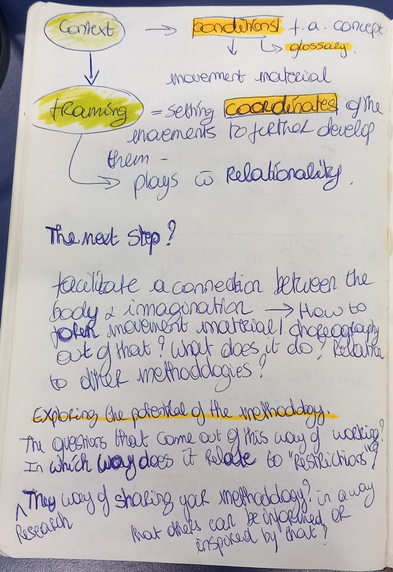 Context → conditions f.a. concept
↓ ↳ glossary
movement material
framing = setting coordinates of the
movements to further develop
them -
plays w Relationality.
The next step?
facilitate a connection between the
body & imagination → How to
movement material / choreography
out of that? What does it do? Relative
to other methodologies?
Exploring the potential of the methodology.
The questions that come out of this way of working?
In which way does it relate to "Restrictions"?
way of sharing your methodology? in a way
Research that others can be informed or
inspired by that?